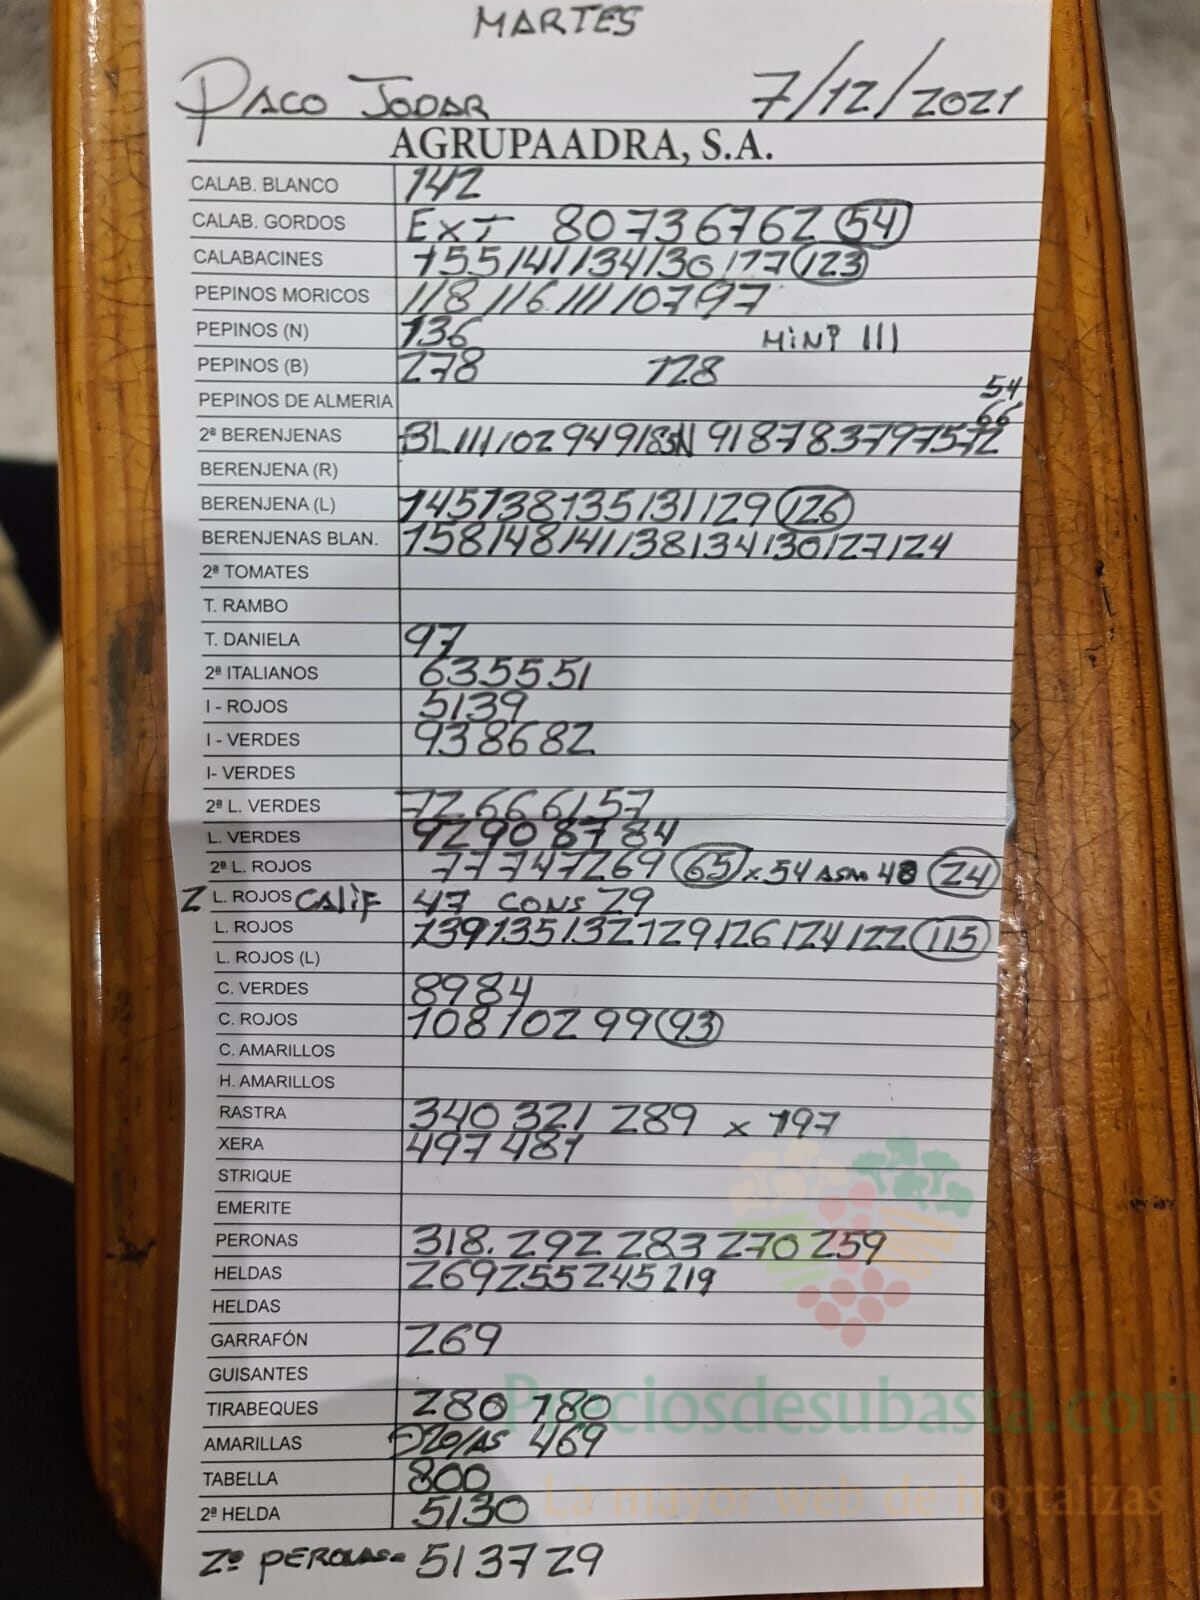 MARTES
PACO JODAR 7/12/2021
AGRUPAADRA, S.A.
CALAB. BLANCO 142
CALAB. GORDOS EXT 80 73 67 62 54
CALABACINES 155/141/134/130/127 123
PEPINOS MORICOS 118 116 111 107 97
PEPINOS (N) 136 MINI 111
PEPINOS (B) 278 128
PEPINOS DE ALMERIA 54
66
2ª BERENJENAS BL 111 102 94 91 85 N 91 87 83 79 75 72
BERENJENA (R)
BERENJENA (L) 145 138 135 131 129 126
BERENJENAS BLAN. 158 148 141 138 134 130 127 124
2ª TOMATES
T. RAMBO
T. DANIELA 97
2ª ITALIANOS 63 55 51
I - ROJOS 51 39
I - VERDES 93 86 82
I- VERDES
2ª L. VERDES 72 66 61 57
L. VERDES 92 90 87 84
2ª L. ROJOS 77 74 72 69 65 x 54 ASM 48 24
2 L. ROJOS CALIF 47 CONS 29
L. ROJOS 139 135 132 129 126 124 122 115
L. ROJOS (L)
C. VERDES 89 84
C. ROJOS 108 102 99 93
C. AMARILLOS
H. AMARILLOS
RASTRA 340 321 289 x 197
XERA 497 481
STRIQUE
EMERITE
PERONAS 318. 292 283 270 259
HELDAS 269 255 245 219
HELDAS
GARRAFÓN 269
GUISANTES
TIRABEQUES 280 180
AMARILLAS 469
TABELLA 800
2ª HELDA 51 30
2ª PERONAS= 51 37 29
Preciosdesubasta.com
La mayor web de hortalizas